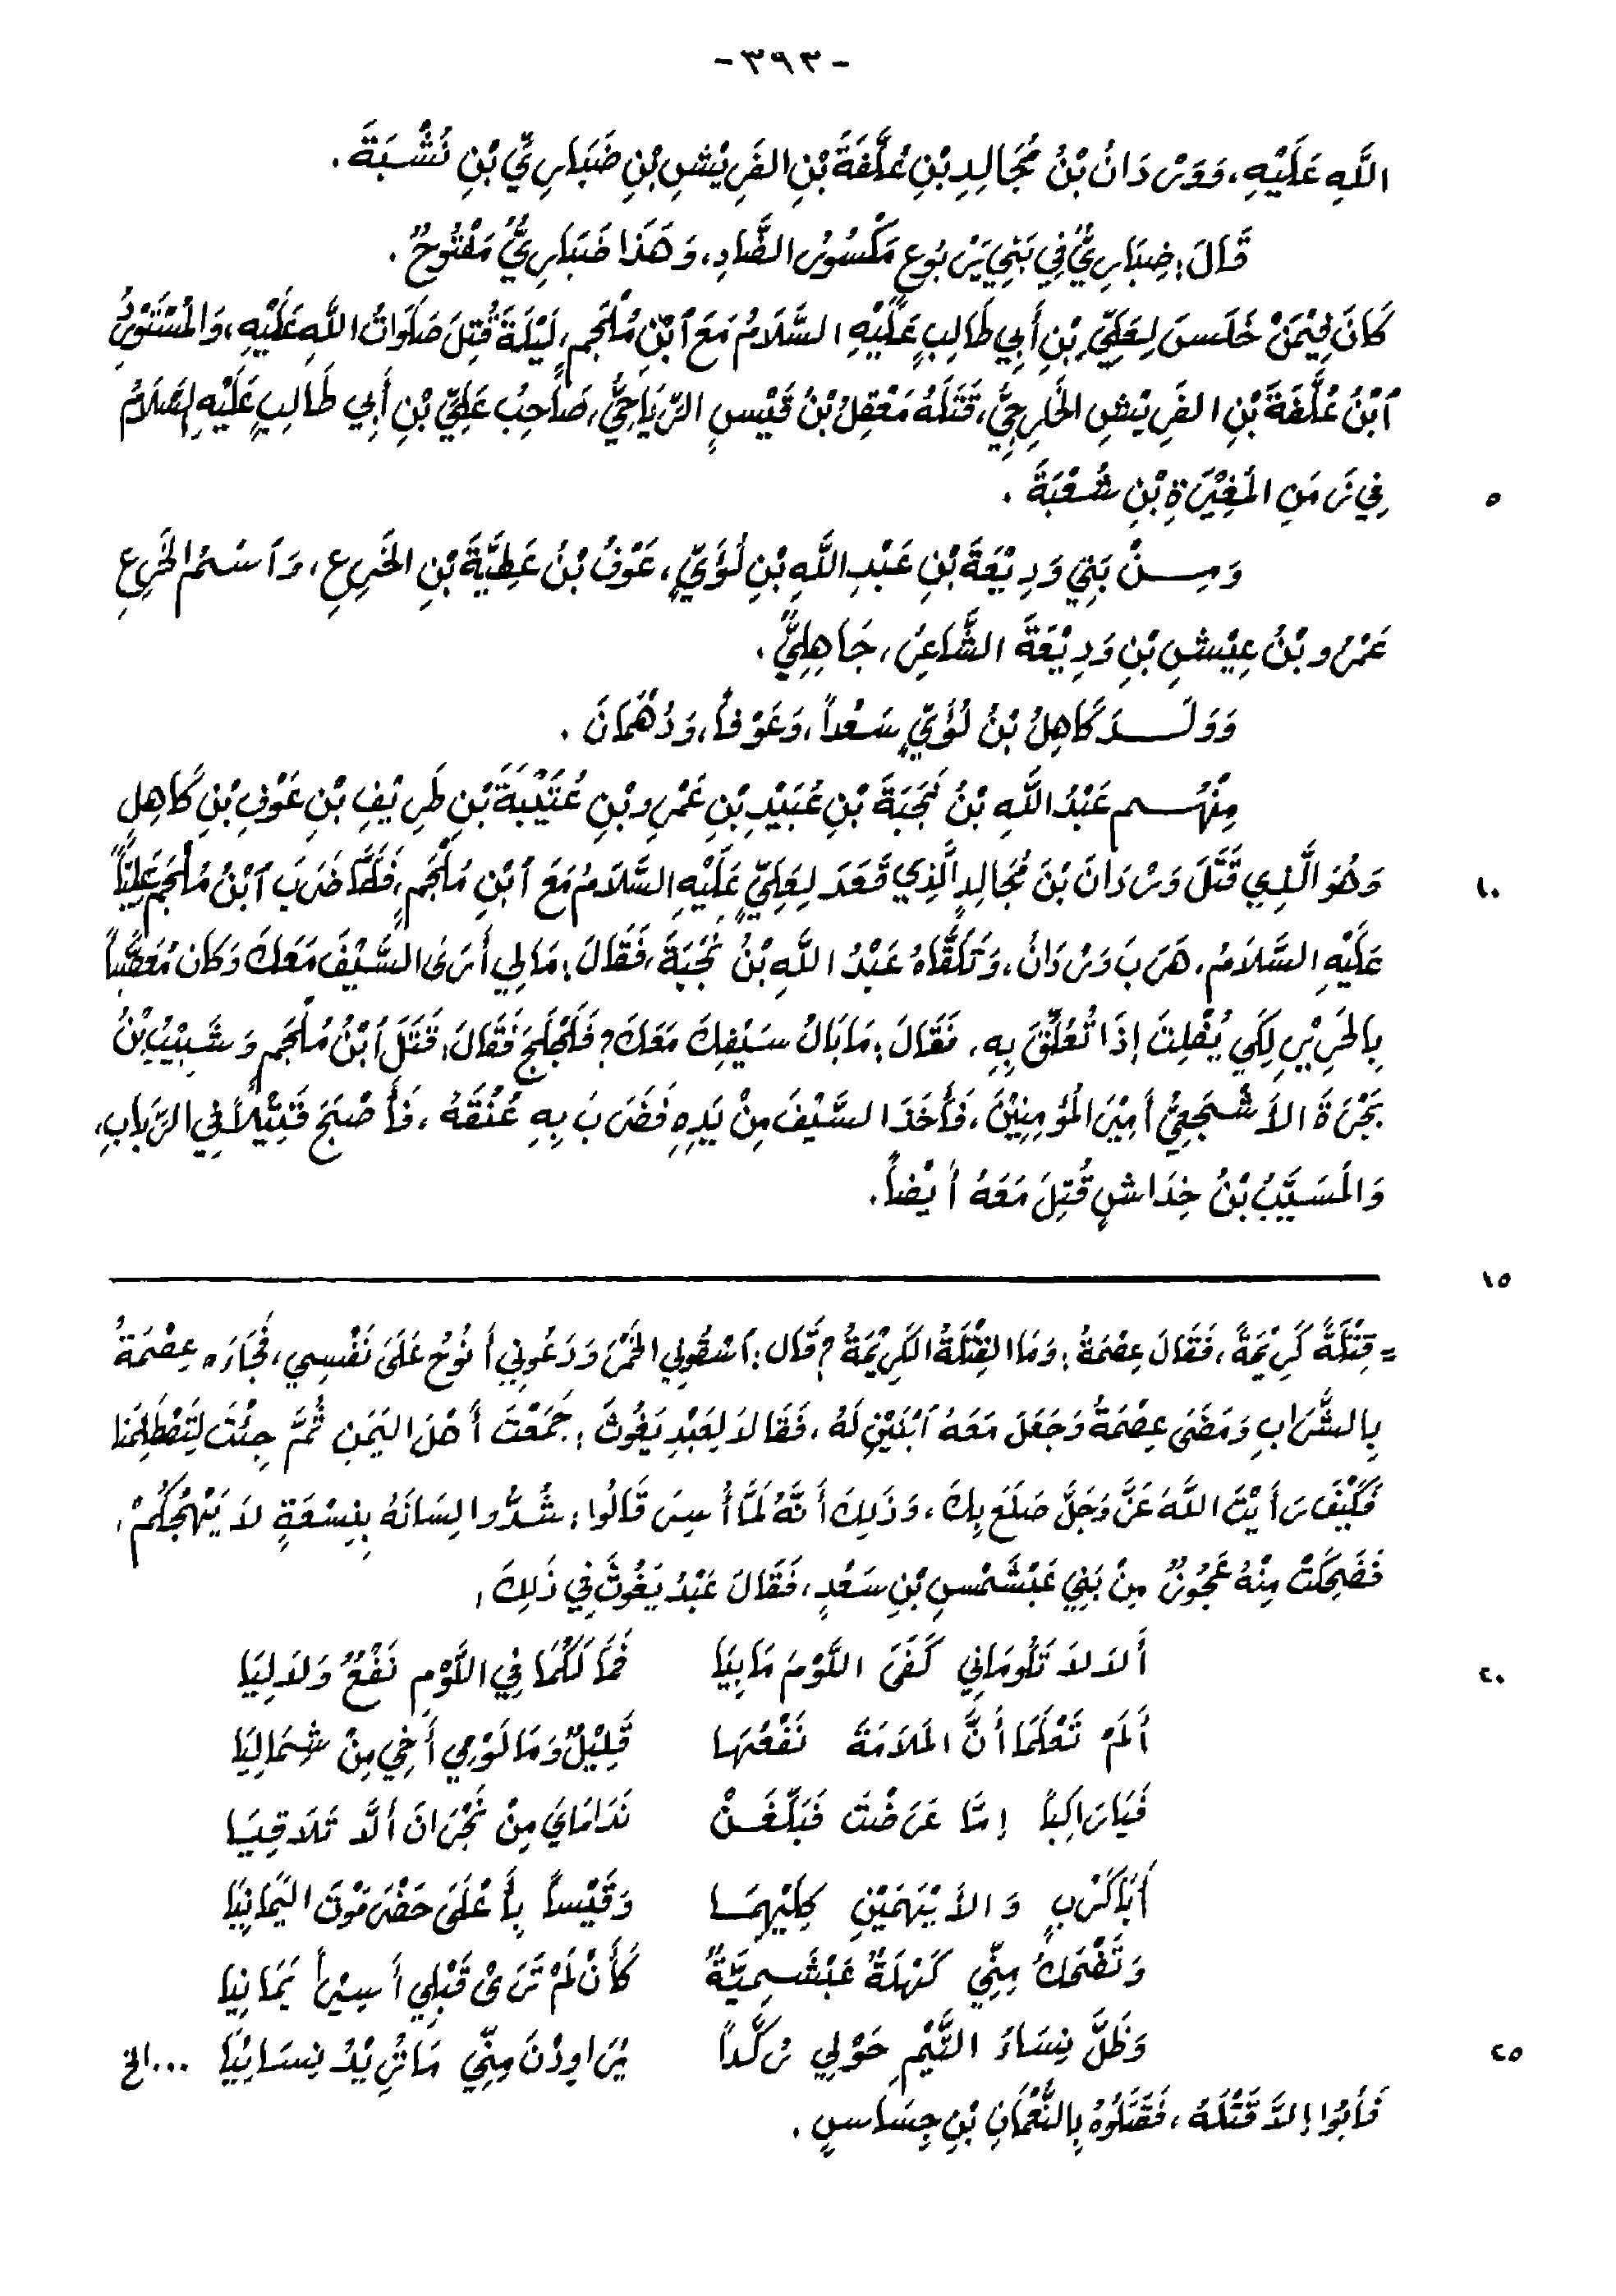 -٣٩٣-
اللَّهِ عَلَيْهِ، وَوَرْدَانُ بْنُ مُجَالِدِ بْنِ عُلَّفَةَ بْنِ الفَرِيْشِ بْنِ ضَبَارِيِّ بْنِ نُشْبَةَ.
قَالَ: ضِبَارِيٌّ فِي بَنِي يَرْبُوعٍ مَكْسُورُ الضَّادِ، وَهَذَا ضَبَارِيٌّ مَفْتُوحٌ.
كَانَ فِيْمَنْ جَلَسَ لِعَلِيِّ بْنِ أَبِي طَالِبٍ عَلَيْهِ السَّلَامُ مَعَ ٱبْنِ مُلْجَمٍ، لَيْلَةَ قُتِلَ صَلَوَاتُ اللَّهِ عَلَيْهِ، وَالمُسْتَوْرِدُ
ٱبْنُ عُلَّفَةَ بْنِ الفَرِيْشِ الخَارِجِيُّ، قَتَلَهُ مَعْقِلُ بْنُ قَيْسٍ الرِّيَاحِيُّ، صَاحِبُ عَلِيِّ بْنِ أَبِي طَالِبٍ عَلَيْهِ السَّلَامُ
فِي زَمَنِ المُغِيْرَةِ بْنِ شُعْبَةَ.
٥
وَمِـنْ بَنِي وَدِيْعَةَ بْنِ عَبْدِ اللَّهِ بْنِ لُؤَيٍّ، عَوْفُ بْنُ عَطِيَّةَ بْنِ الخَرِعِ، وَٱسْمُ الخَرِعِ
عَمْرُو بْنُ عِيْشِ بْنِ وَدِيْعَةَ الشَّاعِرُ، جَاهِلِيٌّ.
وَوَلَـدَ كَاهِلُ بْنُ لُؤَيٍّ سَعْداً، وَعَوْفاً، وَدُهْمَانَ.
مِنْهُـم عَبْدُ اللَّهِ بْنُ نَجَبَةَ بْنِ عُبَيْدِ بْنِ عَمْرِو بْنِ عُتَيْبَةَ بْنِ طَرِيْفِ بْنِ عَوْفِ بْنِ كَاهِلٍ
وَهُوَ الَّذِي قَتَلَ وَرْدَانَ بْنَ مُجَالِدٍ الَّذِي قَعَدَ لِعَلِيٍّ عَلَيْهِ السَّلَامُ مَعَ ٱبْنِ مُلْجَمٍ، فَلَمَّا ضَرَبَ ٱبْنُ مُلْجَمٍ عَلِيّاً
١٠
عَلَيْهِ السَّلَامُ، هَرَبَ وَرْدَانُ، وَتَلَقَّاهُ عَبْدُ اللَّهِ بْنُ نَجَبَةَ، فَقَالَ: مَالِي أَرَى السَّيْفَ مَعَكَ وَكَانَ مُعَصَّباً
بِالحَرِيْرِ لِكَي يُفْلِتَ إذَا تُعُلِّقَ بِهِ، فَقَالَ: مَا بَالُ سَيْفِكَ مَعَكَ؟ فَلَجْلَجَ فَقَالَ: قَتَلَ ٱبْنُ مُلْجَمٍ وَشَبِيْبُ بْنُ
بَجْرَةَ الأَشْجَعِيُّ أَمِيْرَ المُؤْمِنِيْنَ، فَأَخَذَ السَّيْفَ مِنْ يَدِهِ فَضَرَبَ بِهِ عُنُقَهُ، فَأَصْبَحَ قَتِيْلاً فِي الرِّبَابِ،
وَالمُسَيَّبُ بْنُ خِدَاشٍ قُتِلَ مَعَهُ أَيْضاً.
١٥
= قِتْلَةً كَرِيْمَةً، فَقَالَ عِصْمَةُ: وَمَا القِتْلَةُ الكَرِيْمَةُ؟ قَالَ: ٱسْقُونِي الخَمْرَ وَدَعُونِي أَنُوحُ عَلَى نَفْسِي، فَجَاءَهُ عِصْمَةُ
بِالشَّرَابِ وَمَضَى عِصْمَةُ وَجَعَلَ مَعَهُ ٱبْنَيْنِ لَهُ، فَقَالَا لِعَبْدِ يَغُوثَ: جَمَعْتَ أَهْلَ اليَمَنِ ثُمَّ جِئْتَ لِتَصْطَلِمَنَا
فَكَيْفَ رَأَيْتَ اللَّهَ عَزَّ وَجَلَّ صَنَعَ بِكَ، وَذَلِكَ أَنَّهُ لَمَّا أُسِرَ قَالُوا: شُدُّوا لِسَانَهُ بِنِسْعَةٍ لَا يَهْجُكُمْ،
فَضَحِكَتْ مِنْهُ عَجُوزٌ مِنْ بَنِي عَبْشَمْسِ بْنِ سَعْدٍ، فَقَالَ عَبْدُ يَغُوثَ فِي ذَلِكَ:
أَلَا لَا تَلُومَانِي كَفَى اللَّوْمَ مَا بِيَا فَمَا لَكُمَا فِي اللَّوْمِ نَفْعٌ وَلَا لِيَا
٢٠
أَلَمْ تَعْلَمَا أَنَّ المَلَامَةَ نَفْعُهَا قَلِيْلٌ وَمَا لَوْمِي أَخِي مِنْ شِمَالِيَا
فَيَا رَاكِباً إمَّا عَرَضْتَ فَبَلِّغَـنْ نَدَامَايَ مِنْ نَجْرَانَ أَلَّا تَلَاقِيَـا
أَبَا كَرْبٍ وَالأَيْهَمَيْنِ كِلَيْهِمَـا وَقَيْساً بِأَعْلَى حَضْرَمَوْتَ اليَمَانِيَا
وَتَضْحَكُ مِنِّي كَهْلَةٌ عَبْشَـمِيَّةٌ كَأَنْ لَمْ تَرَىْ قَبْلِي أَسِيْراً يَمَانِيَا
وَظَلَّ نِسَاءُ التَّيْمِ حَوْلِي رُكَّداً يُرَاوِدْنَ مِنِّي مَا تُرِيْدُ نِسَائِيَا ...الخ
٢٥
فَأَبَوْا إلَّا قَتْلَهُ، فَقَتَلُوهُ بِالنُّعْمَانِ بْنِ جِسَاسٍ.